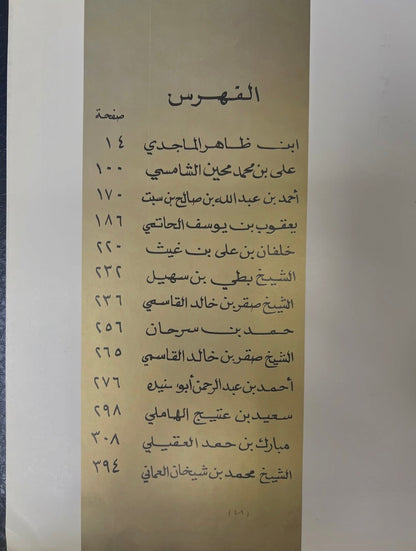 الفهرس
صفحة
ابن ظاهر الماجدي ١٤
على بن محمد محين الشامسي ١٠٠
أحمد بن عبدالله بن صالح بن سبت ١٧٠
يعقوب بن يوسف الحاتمي ١٨٦
خلفان بن على بن غيث ٢٢٠
الشيخ بطي بن سهيل ٢٣٢
الشيخ صقر بن خالد القاسمي ٢٣٦
حمد بن سرحان ٢٥٦
الشيخ صقر بن خالد القاسمي ٢٦٥
أحمد بن عبدالرحمن أبو سنيده ٢٧٦
سعيد بن عتيج الهاملي ٢٩٨
مبارك بن حمد العقيلي ٣٠٨
الشيخ محمد بن شيخان العماني ٣٩٤
(٤٠٨)